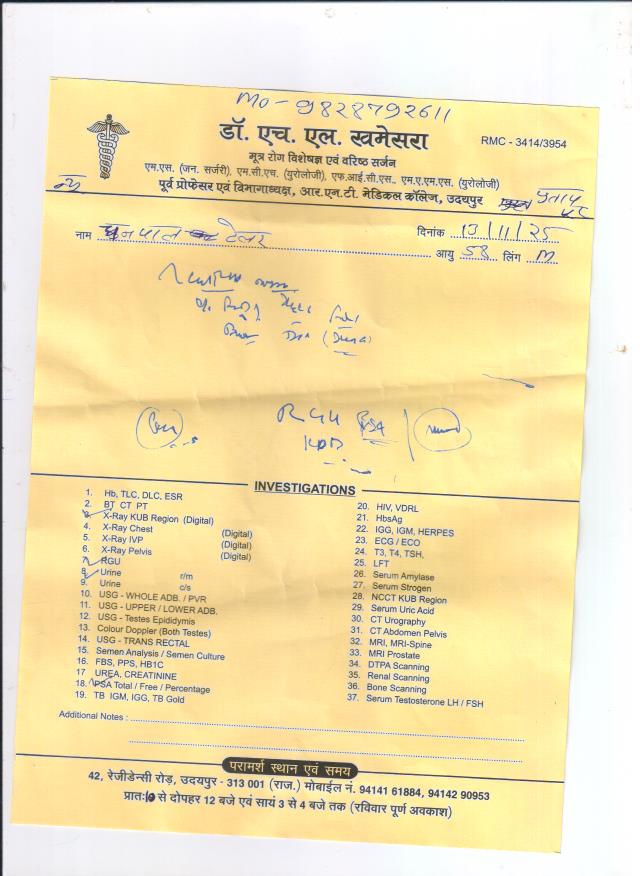 Mo - 9828792611
डॉ. एच. एल. खमेसरा
RMC - 3414/3954
मूत्र रोग विशेषज्ञ एवं वरिष्ठ सर्जन
एम.एस. (जन. सर्जरी), एम.सी.एच. (युरोलोजी), एफ.आई.सी.एस., एम.ए.एम.एस. (युरोलोजी)
पूर्व प्रोफेसर एवं विभागाध्यक्ष, आर.एन.टी. मेडिकल कॉलेज, उदयपुर
नाम धनपाल टेलर दिनांक 13/11/25
आयु 58 लिंग M
RGU PSA
INVESTIGATIONS
1. Hb, TLC, DLC, ESR
2. BT CT PT
3. X-Ray KUB Region (Digital)
4. X-Ray Chest (Digital)
5. X-Ray IVP (Digital)
6. X-Ray Pelvis (Digital)
7. RGU
8. Urine r/m
9. Urine c/s
10. USG - WHOLE ADB. / PVR
11. USG - UPPER / LOWER ADB.
12. USG - Testes Epididymis
13. Colour Doppler (Both Testes)
14. USG - TRANS RECTAL
15. Semen Analysis / Semen Culture
16. FBS, PPS, HB1C
17 UREA, CREATININE
18. PSA Total / Free / Percentage
19. TB IGM, IGG, TB Gold
20. HIV, VDRL
21. HbsAg
22. IGG, IGM, HERPES
23. ECG / ECO
24. T3, T4, TSH,
25. LFT
26. Serum Amylase
27. Serum Strogen
28. NCCT KUB Region
29. Serum Uric Acid
30. CT Urography
31. CT Abdomen Pelvis
32. MRI, MRI-Spine
33. MRI Prostate
34. DTPA Scanning
35. Renal Scanning
36. Bone Scanning
37. Serum Testosterone LH / FSH
Additional Notes :
परामर्श स्थान एवं समय
42, रेजीडेन्सी रोड़, उदयपुर - 313 001 (राज.) मोबाईल नं. 94141 61884, 94142 90953
प्रातः 10 से दोपहर 12 बजे एवं सायं 3 से 4 बजे तक (रविवार पूर्ण अवकाश)